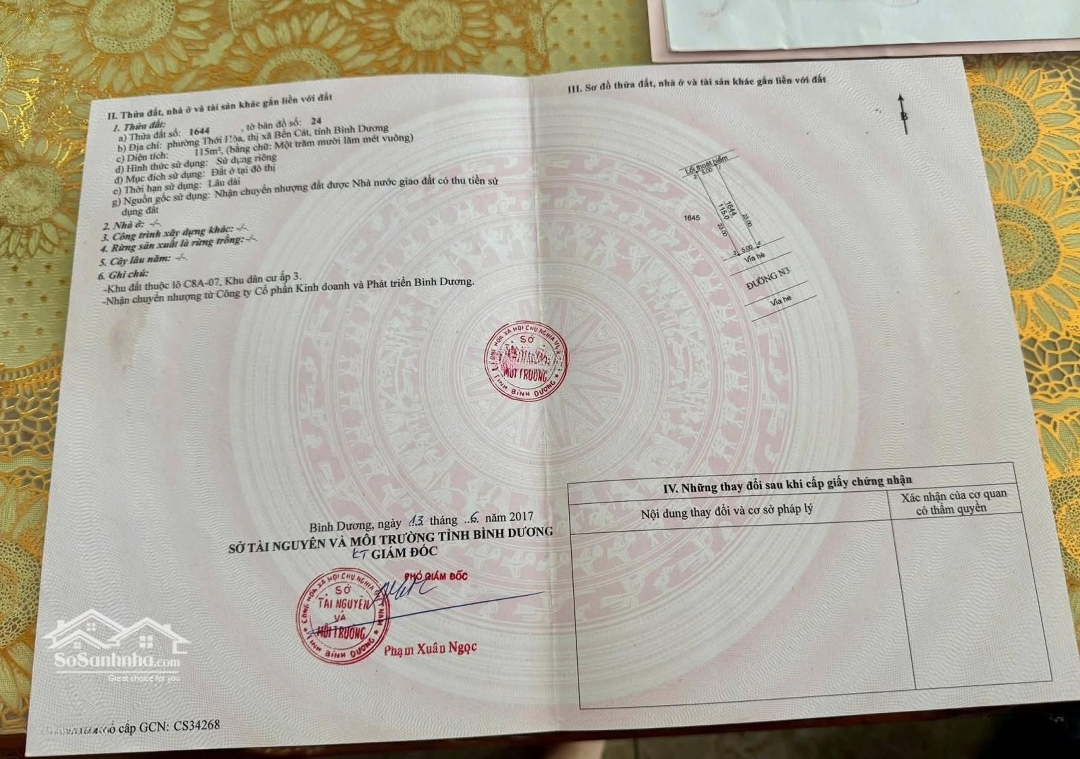 II. Thửa đất, nhà ở và tài sản khác gắn liền với đất
1. Thửa đất:
a) Thửa đất số: 1644 , tờ bản đồ số: 24
b) Địa chỉ: phường Thới Hòa, thị xã Bến Cát, tỉnh Bình Dương
c) Diện tích: 115m², (bằng chữ: Một trăm mười lăm mét vuông)
d) Hình thức sử dụng: Sử dụng riêng
đ) Mục đích sử dụng: Đất ở tại đô thị
e) Thời hạn sử dụng: Lâu dài
g) Nguồn gốc sử dụng: Nhận chuyển nhượng đất được Nhà nước giao đất có thu tiền sử
dụng đất
2. Nhà ở: -/-
3. Công trình xây dựng khác: -/-
4. Rừng sản xuất là rừng trồng: -/-
5. Cây lâu năm: -/-
6. Ghi chú:
-Khu đất thuộc lô C8A-07, Khu dân cư ấp 3.
-Nhận chuyển nhượng từ Công ty Cổ phần Kinh doanh và Phát triển Bình Dương.
Bình Dương, ngày 13 tháng ..6. năm 2017
SỞ TÀI NGUYÊN VÀ MÔI TRƯỜNG TỈNH BÌNH DƯƠNG
KT GIÁM ĐỐC
PHÓ GIÁM ĐỐC
CỘNG HÒA XÃ HỘI CHỦ NGHĨA VIỆT NAM
SỞ
TÀI NGUYÊN
VÀ
MÔI TRƯỜNG
TỈNH BÌNH DƯƠNG
Phạm Xuân Ngọc
cấp GCN: CS34268
SoSanhnha.com
Great choice for you
III. Sơ đồ thửa đất, nhà ở và tài sản khác gắn liền với đất
B
Lối thoát hiểm
2 5.00 1
1645
1644
115.0
23.00
23.00
3 5.00 4
Vỉa hè
ĐƯỜNG N3
Vỉa hè
SỞ
MÔI TRƯỜNG
TỈNH BÌNH DƯƠNG
IV. Những thay đổi sau khi cấp giấy chứng nhận
Nội dung thay đổi và cơ sở pháp lý
Xác nhận của cơ quan
có thẩm quyền